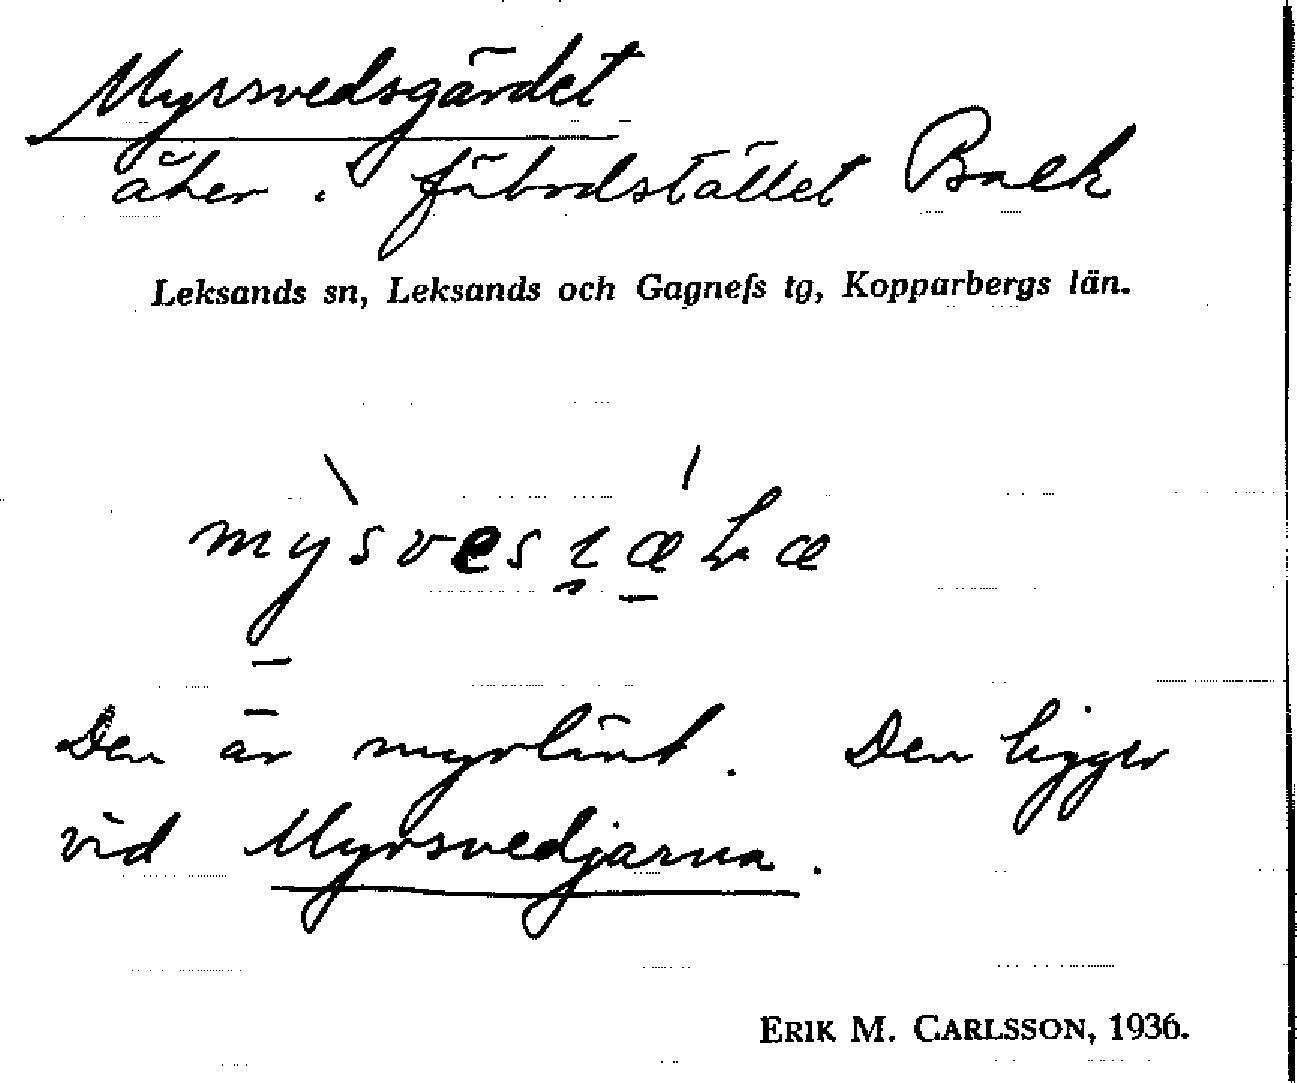 Myrsvedsgärdet
åker i fäbodstället Back
Leksands sn, Leksands och Gagnefs tg, Kopparbergs län.
Den är myrlänt. Den ligger
vid Myrsvedjarna.
ERIK M. CARLSSON, 1936.